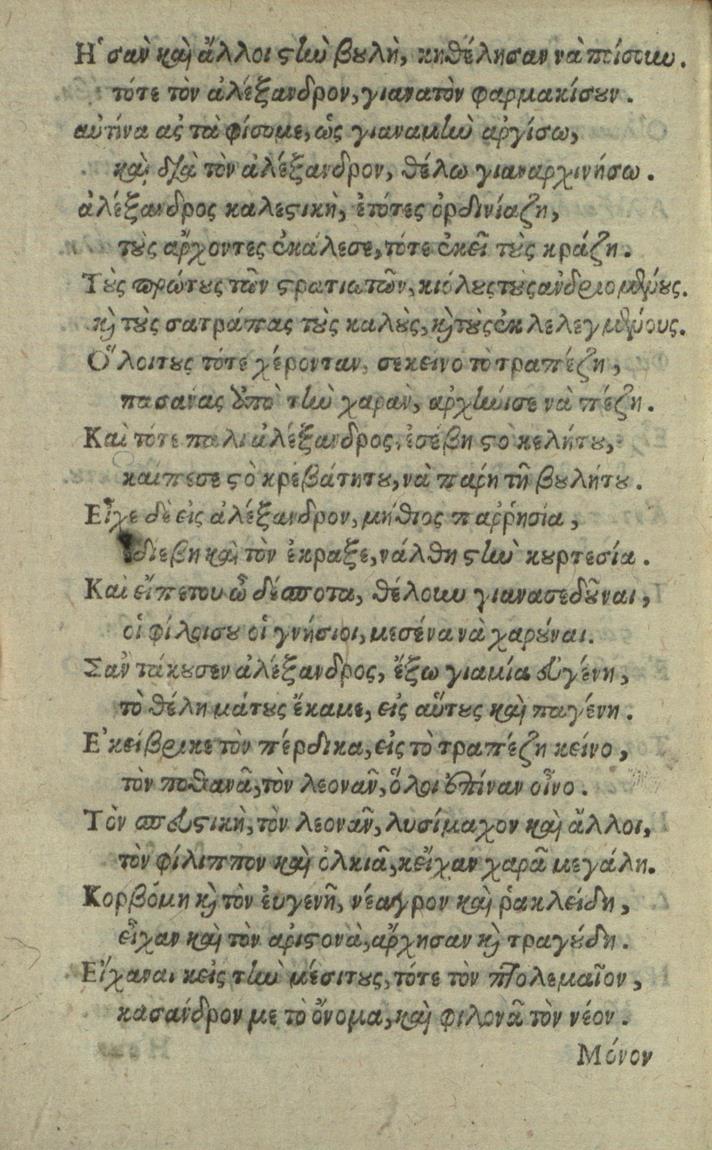 Ἦσαν καὶ ἄλλοι στὴν βουλὴ, κηθέλησαν νὰ ποίσουν.
τότε τὸν ἀλέξανδρον, γιανατὸν φαρμακίσουν.
αὐτήνα ἀς τὰ φίσομε, ὡς γιαναμὴν ἀργίσω,
καὶ διὰ τὸν ἀλέξανδρον, θέλω γιαναρχινήσω.
ἀλέξανδρος καλεστικὴ, ἐτότες ὀρδινίαζη,
τοὺς ἄρχοντες ἐκάλεσε, τότε ἐκεῖ τοὺς κράζη.
Τοὺς πρώτους τῶν στρατιωτῶν, κιόλους τους ἀνδρειομένους.
καὶ τοὺς σατράπας τοὺς καλοὺς, καὶ τοὺς ἐκλελεγμένους.
Ὅλοιτους τότε χέρονταν, σεκεῖνο τὸ τραπέζη,
πασανας ὑπὸ τὴν χαρὰν, ἀρχήνισε νὰ πέζη.
Καὶ τότε παλι ἀλέξανδρος, ἐσέβη στὸ κελήτου,
καίπεσε στὸ κρεβάτητου, νὰ παρη τὴ βουλήτου.
Εἶχε δὲ εἰς ἀλέξανδρον, μήθιος παῤῥησία,
διεβη καὶ τὸν ἐκραξε, νάλθη στὴν κουρτεσία.
Καὶ εἴπετου ὦ δέσποτα, θέλουν γιανασεδοῦναι,
οἱ φίλοισου οἱ γνήσιοι, μεσένα νὰ χαροῦναι.
Σαν τάκουσεν ἀλέξανδρος, ἔξω γιαμία εὐγένη,
τὸ θέλημάτους ἔκαμε, εἰς αὔτους καὶ παγένη.
Ἐκεῖ βρῆκε τὸν πέρδικα, εἰς τὸ τραπέζη κείνο,
τὸν ποθανᾶ, τὸν λεονᾶν, ὅλοι ἐπίναν οἶνο.
Τὸν πευστικὴ, τὸν λεονᾶν, λυσίμαχον καὶ ἄλλοι,
τὸν φίλιππον καὶ ὀλκιᾶ, κεἴχαν χαρᾶ μεγάλη.
Κορβόμη καὶ τὸν ἐυγενῆ, νέαγρον καὶ ῥακλείδη,
εἶχαν καὶ τὸν ἀριστονὰ, ἄρχησαν καὶ τραγούδη.
Εἴχαναι κεἰς τὴν μέσιτους, τότε τὸν πτολεμαῖον,
κασάνδρον με τὸ ὄνομα, καὶ φιλονᾶ τὸν νέον.
Μόνον